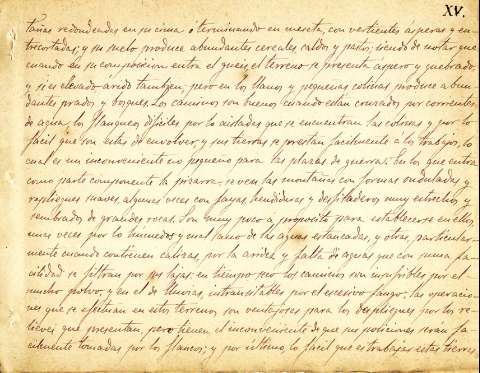 XV.
tañas redondeadas en su cima ó terminando en meseta, con vertientes ásperas y en-
trecortadas; y su suelo produce abundantes cereales, caldos y pastos; siendo de notar que
cuando en su composicion entra el gneis el terreno se presenta áspero y quebrado,
y si es elevado árido tambien; pero en los llanos y pequeñas colinas produce abun-
dantes prados y bosques. Los caminos son buenos cuando estan cruzados por corrientes
de agua, los flanqueos difíciles por lo aisladas que se encuentran las colinas y por lo
fácil que son estas de envolver, y sus tierras se prestan facilmente á los trabajos, lo
cual es un inconveniente no pequeño para las plazas de guerra. En los que entra
como parte componente la pizarra se ven las montañas con formas onduladas y
repliegues suaves, algunas veces con fajas, hendiduras y desfiladeros muy estrechos y
sembrados de grandes rocas. Son muy poco á propósito para establecerse en ellos,
unas veces por lo húmedos y mal sano de las aguas estancadas, y otras, particular-
mente cuando contienen calizas por la aridez y falta de aguas que con suma fa-
cilidad se filtran por sus lajas: en tiempo seco los caminos son insufribles por el
mucho polvo, y en el de lluvias, intransitables por el escesivo fango: las operacio-
nes que se efectúan en estos terrenos son ventajosas para los despliegues por los re-
lieves que presentan, pero tienen el inconveniente de que sus posiciones sean fa-
cilmente tomadas por los flancos; y por último, lo fácil que es trabajar estas tierras